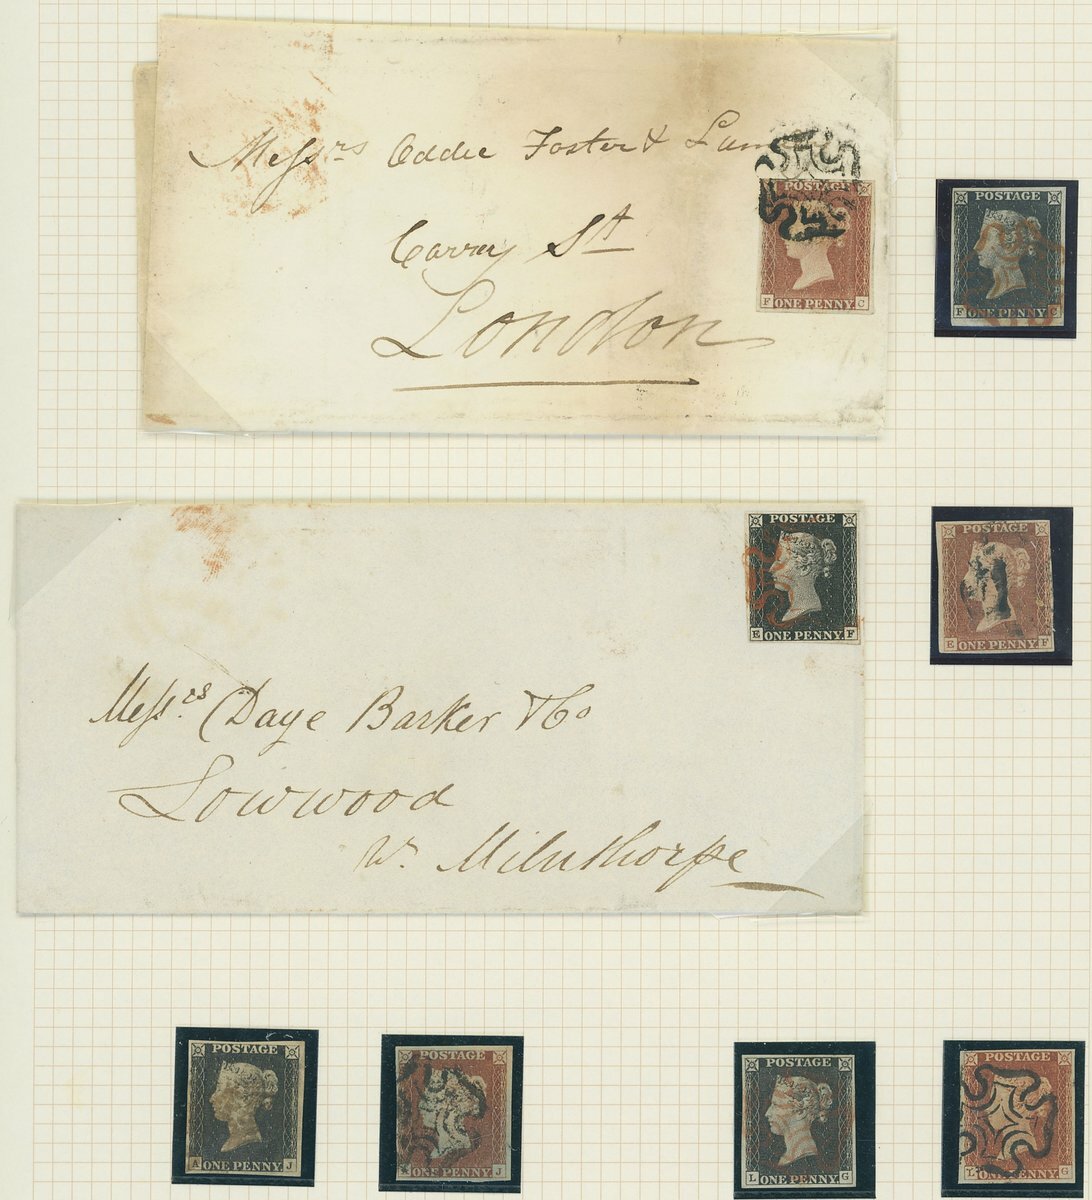 Messrs Oddie Foster & Lum
Carey St
London
POSTAGE
F ONE PENNY C
POSTAGE
F ONE PENNY C
POSTAGE
E ONE PENNY F
POSTAGE
E ONE PENNY F
Messrs Daye Barker & Co
Lowwood
nr. Milnthorpe
POSTAGE
A ONE PENNY J
POSTAGE
ONE PENNY J
POSTAGE
L ONE PENNY G
POSTAGE
L ONE PENNY G